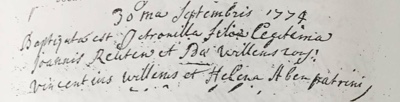 30ma Septembris 1774
Baptizata est Petronilla filia Legitima
Joannis Reuten et Willems
Vincentius Willems et Helena patrini